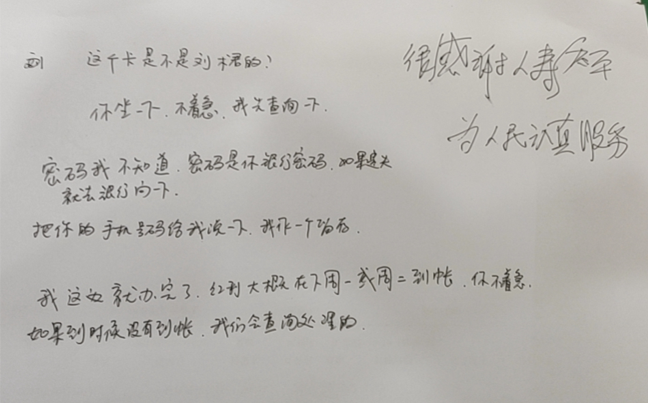 这个卡是不是刘木君的?
你坐一下,不着急,我先查询一下.
密码我不知道,密码是你银行密码,如果遗失
就去银行问一下.
把你的手机号码给我说一下,我作一个留存.
我这边就办完了,红利大概在下周一或周二到帐,你不着急.
如果到时候没有到帐,我们会查询处理的.
很感谢人寿
为人民认真服务